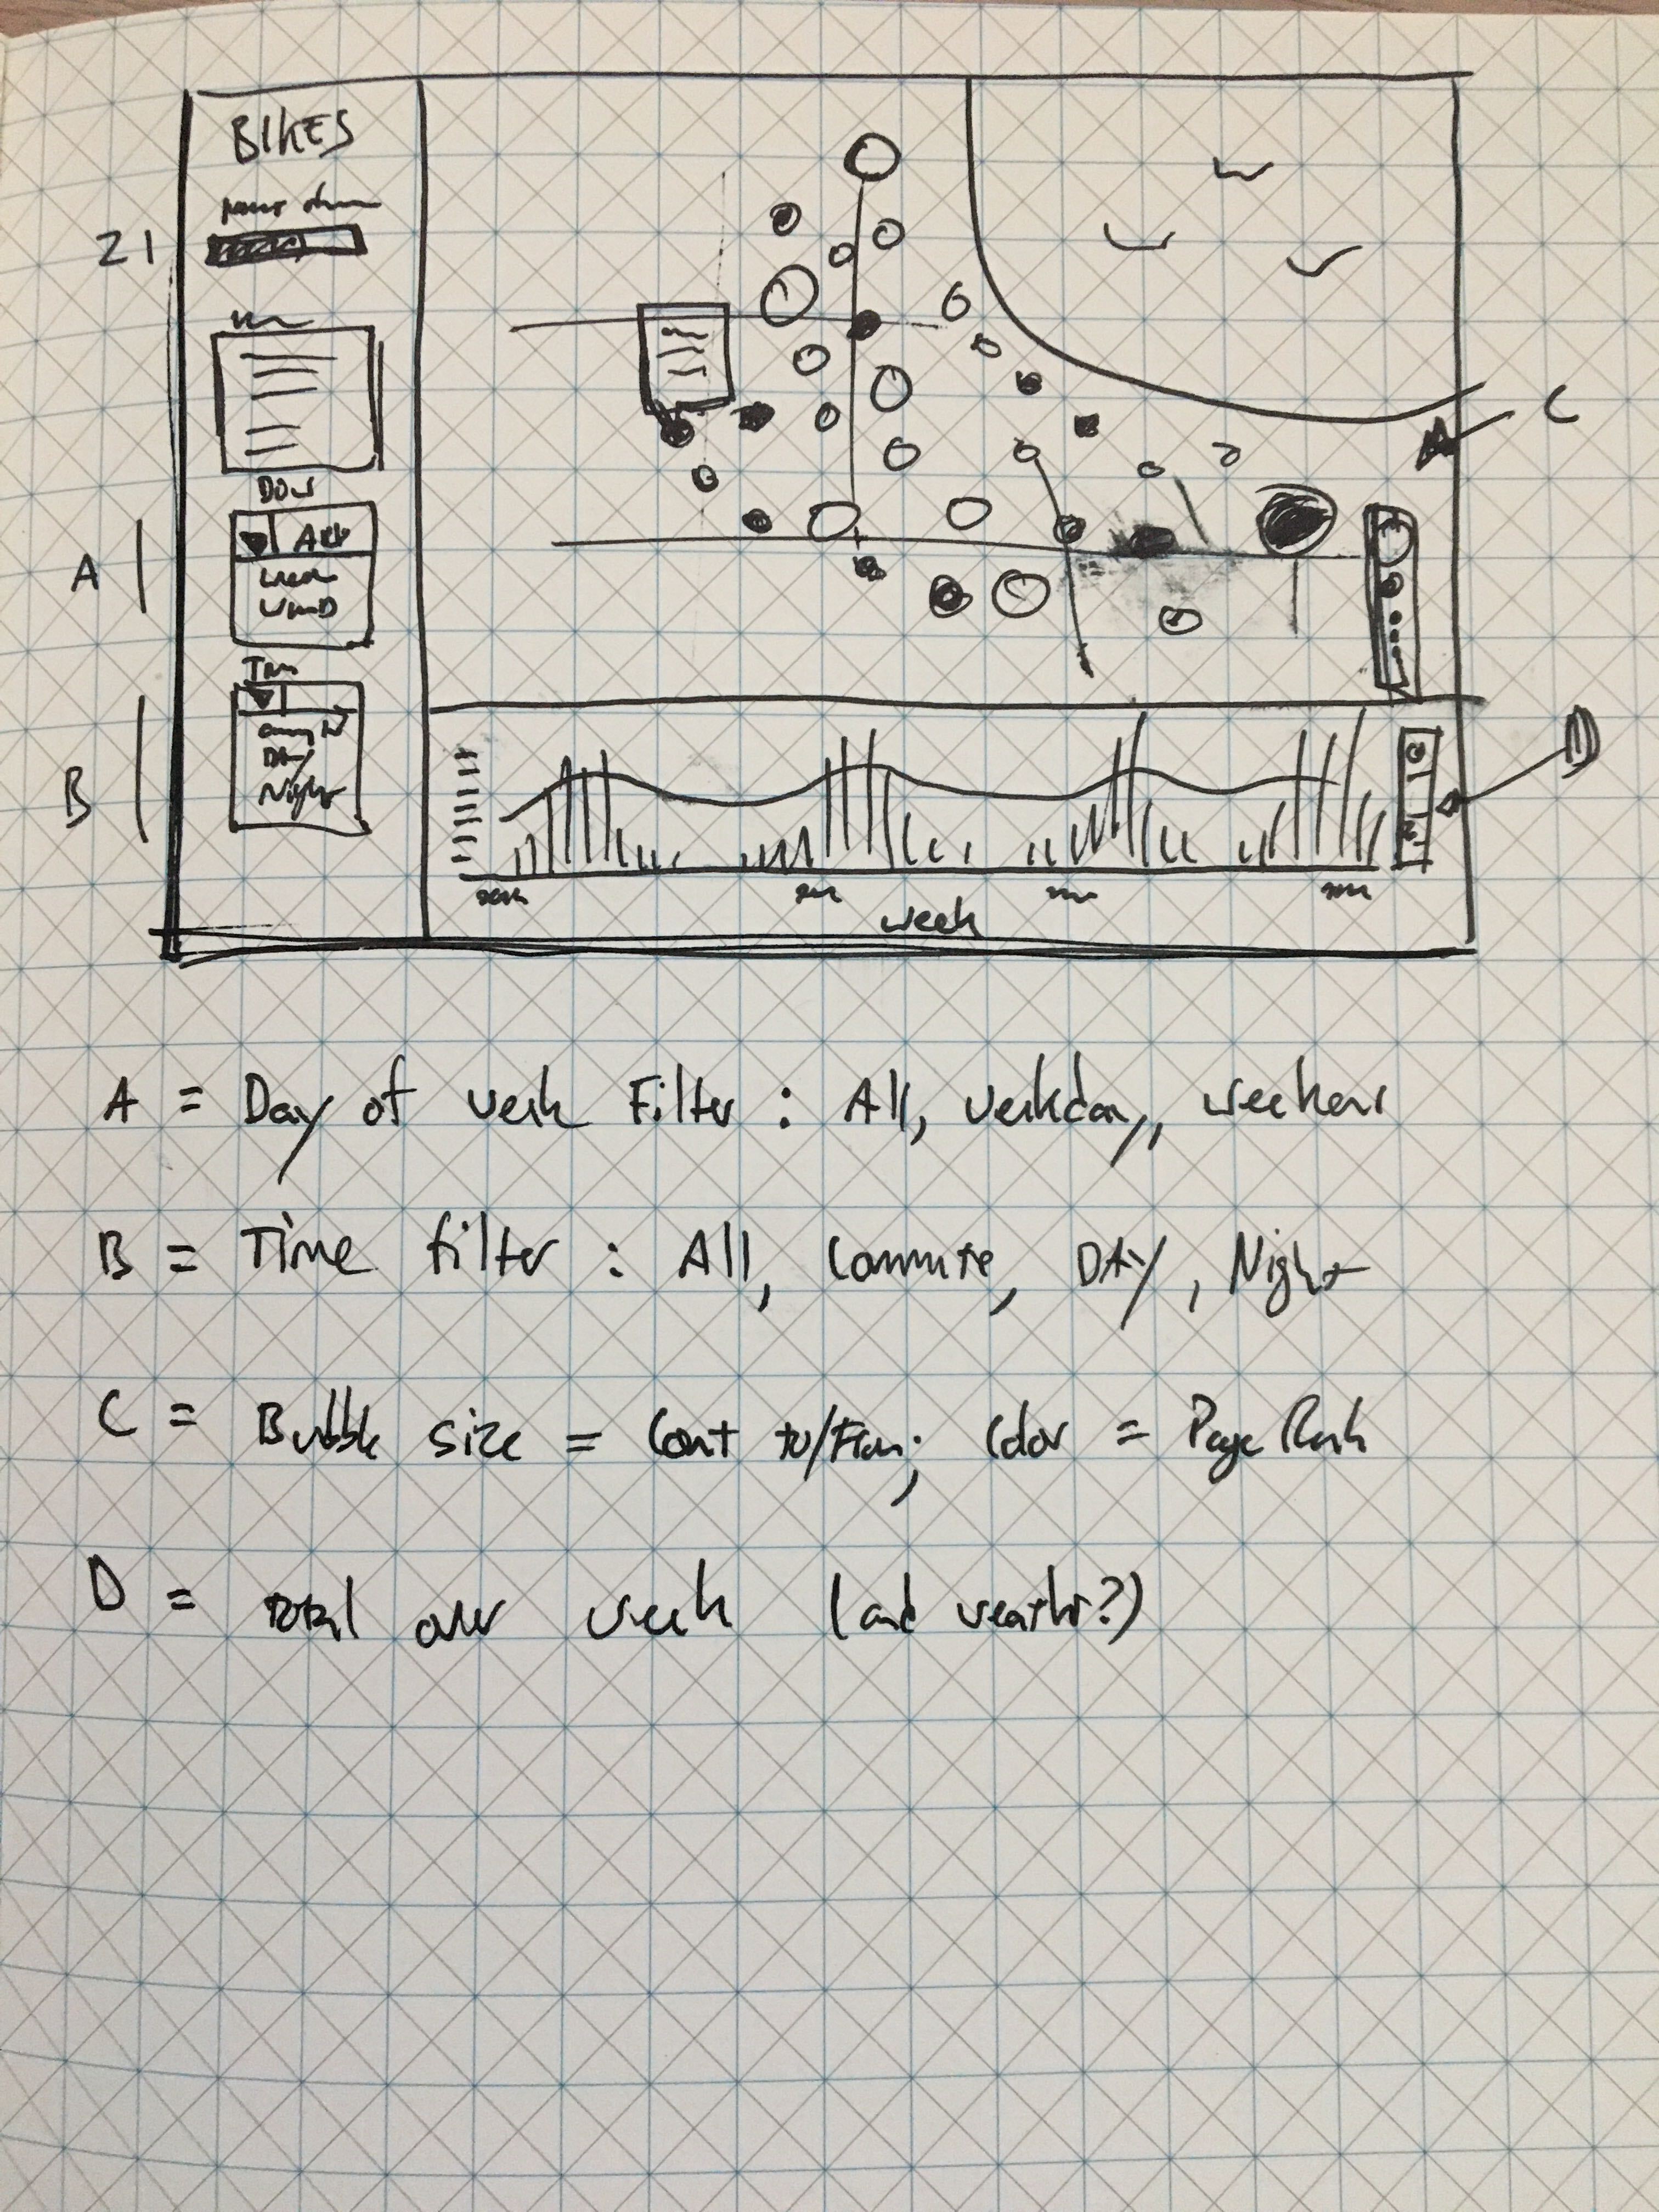 BIKES
21
DOW
A
All
B
Day
Night
C
D
week
A = Day of week Filter : All, weekday, weekend
B = Time filter : All, Commute, DAY, Night
C = Bubble size = Count to/From; Color = Page Rank
D = total over week (and weather?)